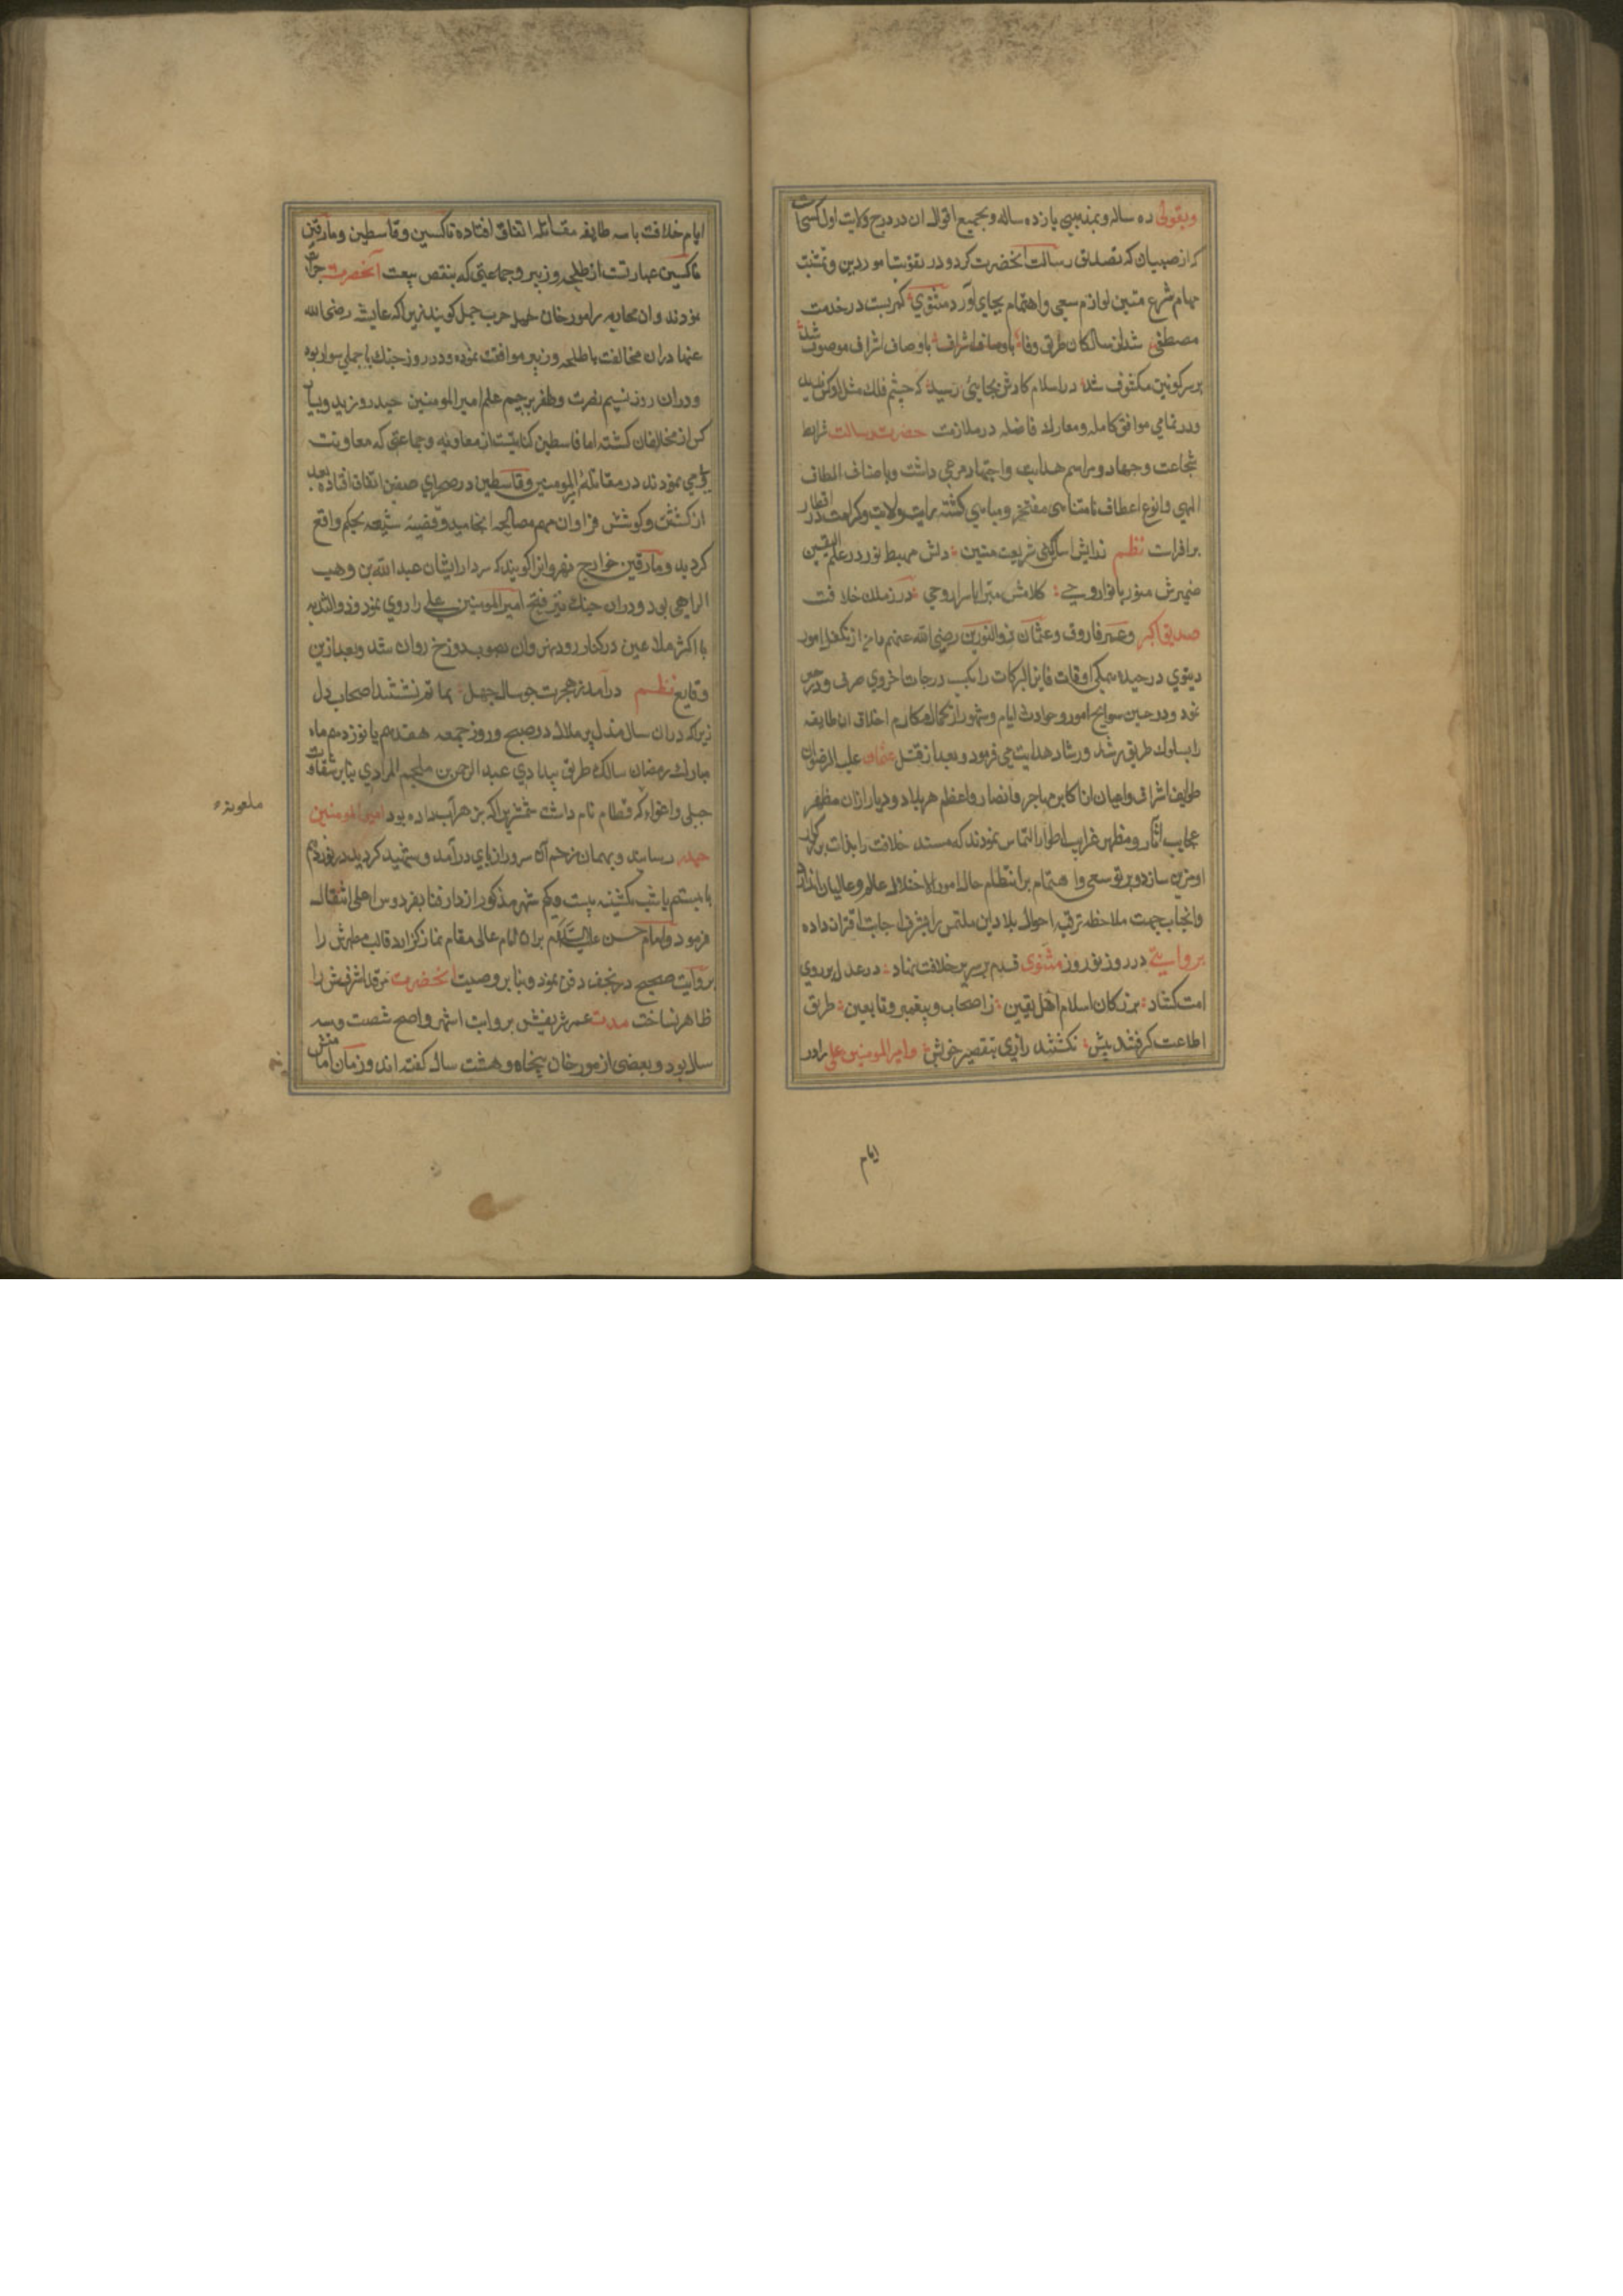 وبقولی ده ساله وبمذهبی یازده ساله وبجمیع اقوال ان در درج ولایت اول کسی
که از صبیان که تصدیق رسالت انحضرت کرد و در تقویت امور دین و تمشیت
مهام شرع متین لوازم سعی واهتمام بجای اورد مثنوی کمر بست در خدمت
مصطفی شد از سالکان طریق وفا باوصاف اشراف موصوف شد
برسر کونین مکشوف شد در اسلام کارش بجایی رسید که چشم فلک مثل او کس ندید
ودر تمامی مواقف کامله ومعارک فاضله در ملازمت حضرت رسالت شرایط
شجاعت وجهاد ومراسم هدایت واجتهاد مرعی داشت وباصناف الطاف
الهی وانواع اعطاف نامتناهی مفتخر ومباهی کشته رایت ولایت وکرامت در اقطار
برافراشت نظم ندایش اساسکش شریعت متین دلش مهبط نور در علم الیقین
ضمیرش منور بانوار وحی کلامش مبرا در زمان خلافت
صدیق اکبر وعمر فاروق وعثمان ذوالنورین رضی الله عنهم امور
دنیوی درچیده همکی اوقات فایز البرکات را بکسب درجات اخروی صرف
نمود ودر حین سوانح امور وحوادث ایام وشهور از کمال مکارم اخلاق ان طایفه
را بسلوک طریق رشد ورشاد هدایت می فرمود وبعد از قتل عثمان علیه الرضوان
طوایف اشراف واعیان از اکابر مهاجر وانصار واعاظم هر بلاد ودیار ازان مظهر
عجایب آثار ومظهر غرایب اطوار التماس نمودند که مسند خلافت را بذات بزرکوار
او مزین سازد وپرتو سعی واهتمام بر انتظام حال امور اختلال عالم وعالمیان اندازد
وانجناب جهت ملاحظه ترفیه احوال بلاد این ملتمس را بشرف اجابت اقتران داده
بروایتی در روز نوروز مثنوی قدم بر سریر خلافت نهاد در عدل بر روی
امت کشاد بزرکان اسلام اهل یقین ز اصحاب وپیغمبر وتابعین طریق
اطاعت کرفتند پیش نکشتند راضی بتقصیر خویش وامیر المومنین علی را در
ایام
ایام خلافت با سه طایفه مقاتله اتفاق افتاده ناکسین وقاسطین ومارقین
ناکسین عبارتست از طلحه وزبیر وجماعتی که بنقض بیعت آنحضرت جرات
نمودند وان محاربه را مورخان حرب جمل کویند زیرا که عایشه رضی الله
عنها دران مخالفت با طلحه وزبیر موافقت نموده ودر روز جنک با جملی سوار بود
ودران روز نسیم نصرت وظفر بر چم علم امیر المومنین حیدر وزید وبسیار
کس از مخالفان کشته اما قاسطین کنایتست از معاویه وجماعتی که معاونت
می نمودند در مقاتله امیر المومنین وقاسطین در صحرای صفین اتفاق افتاده بعد
از کشش وکوشش فراوان مهم مصالحه انجامید وقضیه حکم واقع
کردید ومارقین خوارج نهروانرا کویند که سردار ایشان عبد الله بن وهب
الراهبی بود ودران جنک نیز فتح امیر المومنین علی را روی نمود وذو الثدیه
با اکثر ملاعین در کنار رود نهروان بصوب دوزخ روان شد وبعد ازین
وقایع نظم درآمد ز هجرت چو سال چهل بماتم نشستند اصحاب دل
زیرا که دران سال در صبح وروز جمعه هفدهم یا نوزدهم ماه
مبارک رمضان سالک طریق بیدادی عبد الرحمن بن ملجم المرادی بنابر شقاوت
جبلی واغواء که قطام نام داشت شمشیری که بزهر آب داده بود امیر المومنین
حیدر رسانید وبهمان زخم آن سرور از پای درآمد وشهید کردید در نوزدهم
یا بیستم یا شب یکشنبه بیست ویکم شهر مذکور از دار فنا بفردوس اعلی انتقال
فرمود وامام حسن علیه السلام بران امام عالی مقام نماز کزارد قالب مطهرش را
بروایت صحیح در نجف دفن نمود وبنابر وصیت انحضرت مرقد اشرفش را
ظاهر نساخت مدت عمر شریفش بروایت اشهر واصح شصت وسه
سال بود وبعضی از مورخان پنجاه وهشت سال کفته اند وزمان امامتش
ملعونه